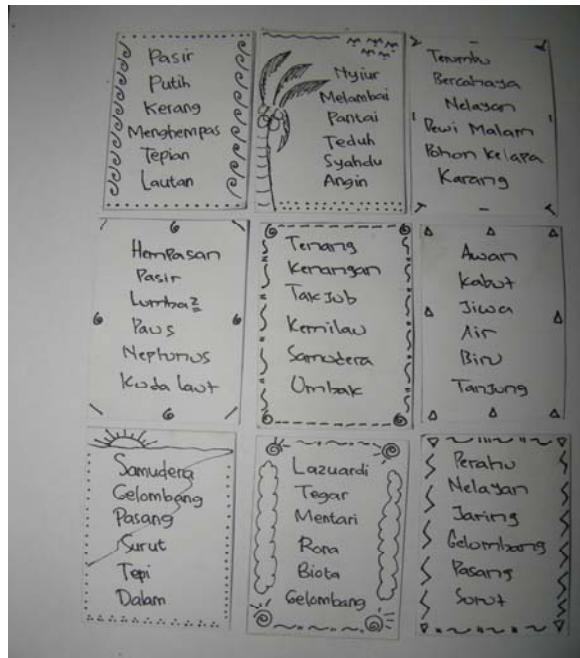 Pasir
Putih
Kerang
Menghempas
Tepian
Lautan
Nyiur
Melambai
Pantai
Teduh
Syahdu
Angin
Terumbu
Bercahaya
Nelayan
Dewi Malam
Pohon Kelapa
Karang
Hempasan
Pasir
Lumba2
Paus
Neptunus
Kuda laut
Tenang
Kenangan
Takjub
Kemilau
Samudera
Ombak
Awan
Kabut
Jiwa
Air
Biru
Tanjung
Samudera
Gelombang
Pasang
Surut
Tepi
Dalam
Lazuardi
Tegar
Mentari
Rona
Biota
Gelombang
Perahu
Nelayan
Jaring
Gelombang
Pasang
Surut